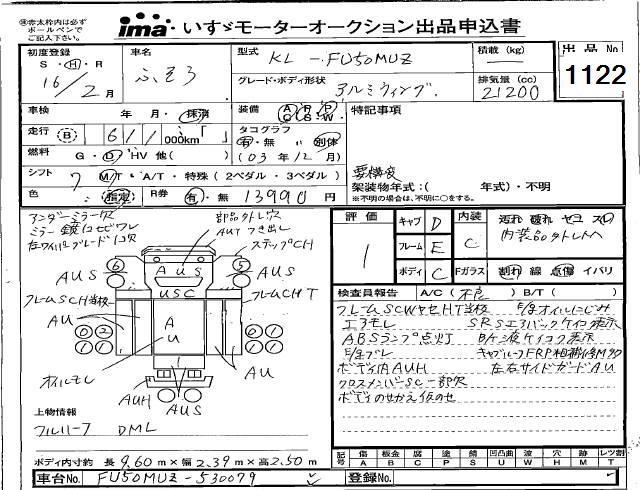 ㊟赤太枠内は必ず
ボールペンで
ご記入下さい。
ima いすゞモーターオークション出品申込書
初度登録 S・H・R 16/2月
車名 ふそう
型式 KL-FU50MUZ
積載(kg)
出品No 1122
グレード・ボディ形状 アルミウイング
排気量(cc) 21200
車検 年 月・抹消
装備 A/C P/S P/W
特記事項
走行 B 611,000km「 」
タコグラフ 有・無 別体
燃料 G・D・HV 他( )
(03年12月)
シフト 7 M/T・A/T・特殊(2ペダル・3ペダル)
架装物年式:( 年式)・不明
※不明の場合は、不明に○をする。
色 指定
R券 有・無 13990円
アンダーミラー欠
ミラー鏡1コヒビワレ
左ワイパーブレード1コ欠
部品外トレ穴
AUTつき出し
ステップCH
AUS
AUS
AUS
USC
フレームSCH当校
フレームCHT
AU
A
U
AU
オイルモレ
AUH
AUS
上物情報
フルハーフ DML
ボディ内寸約 長9.60m×幅2.39m×高2.50m
車台No. FU50MUZ-530079
評価 1
キャブ D
フレーム E
ボディ C
内装 C
汚れ 破れ
内装品外トレ入
Fガラス 割れ 線 点傷 イバリ
検査員報告 A/C(不良) B/T( )
フレームSCWヤセHT当校
エアモレ SRSエアバックケイコク表示
ABSランプ点灯 Bカン液ケイコク表示
ボディ内AUH 左右サイドガードAU
クロスメンバーSC一部欠
ボディのせかえ仮のせ
記号 傷A 板金B 腐C 塗P 錆S 凹凸曲U 波W 穴H 跡M レツ割T
登録No.